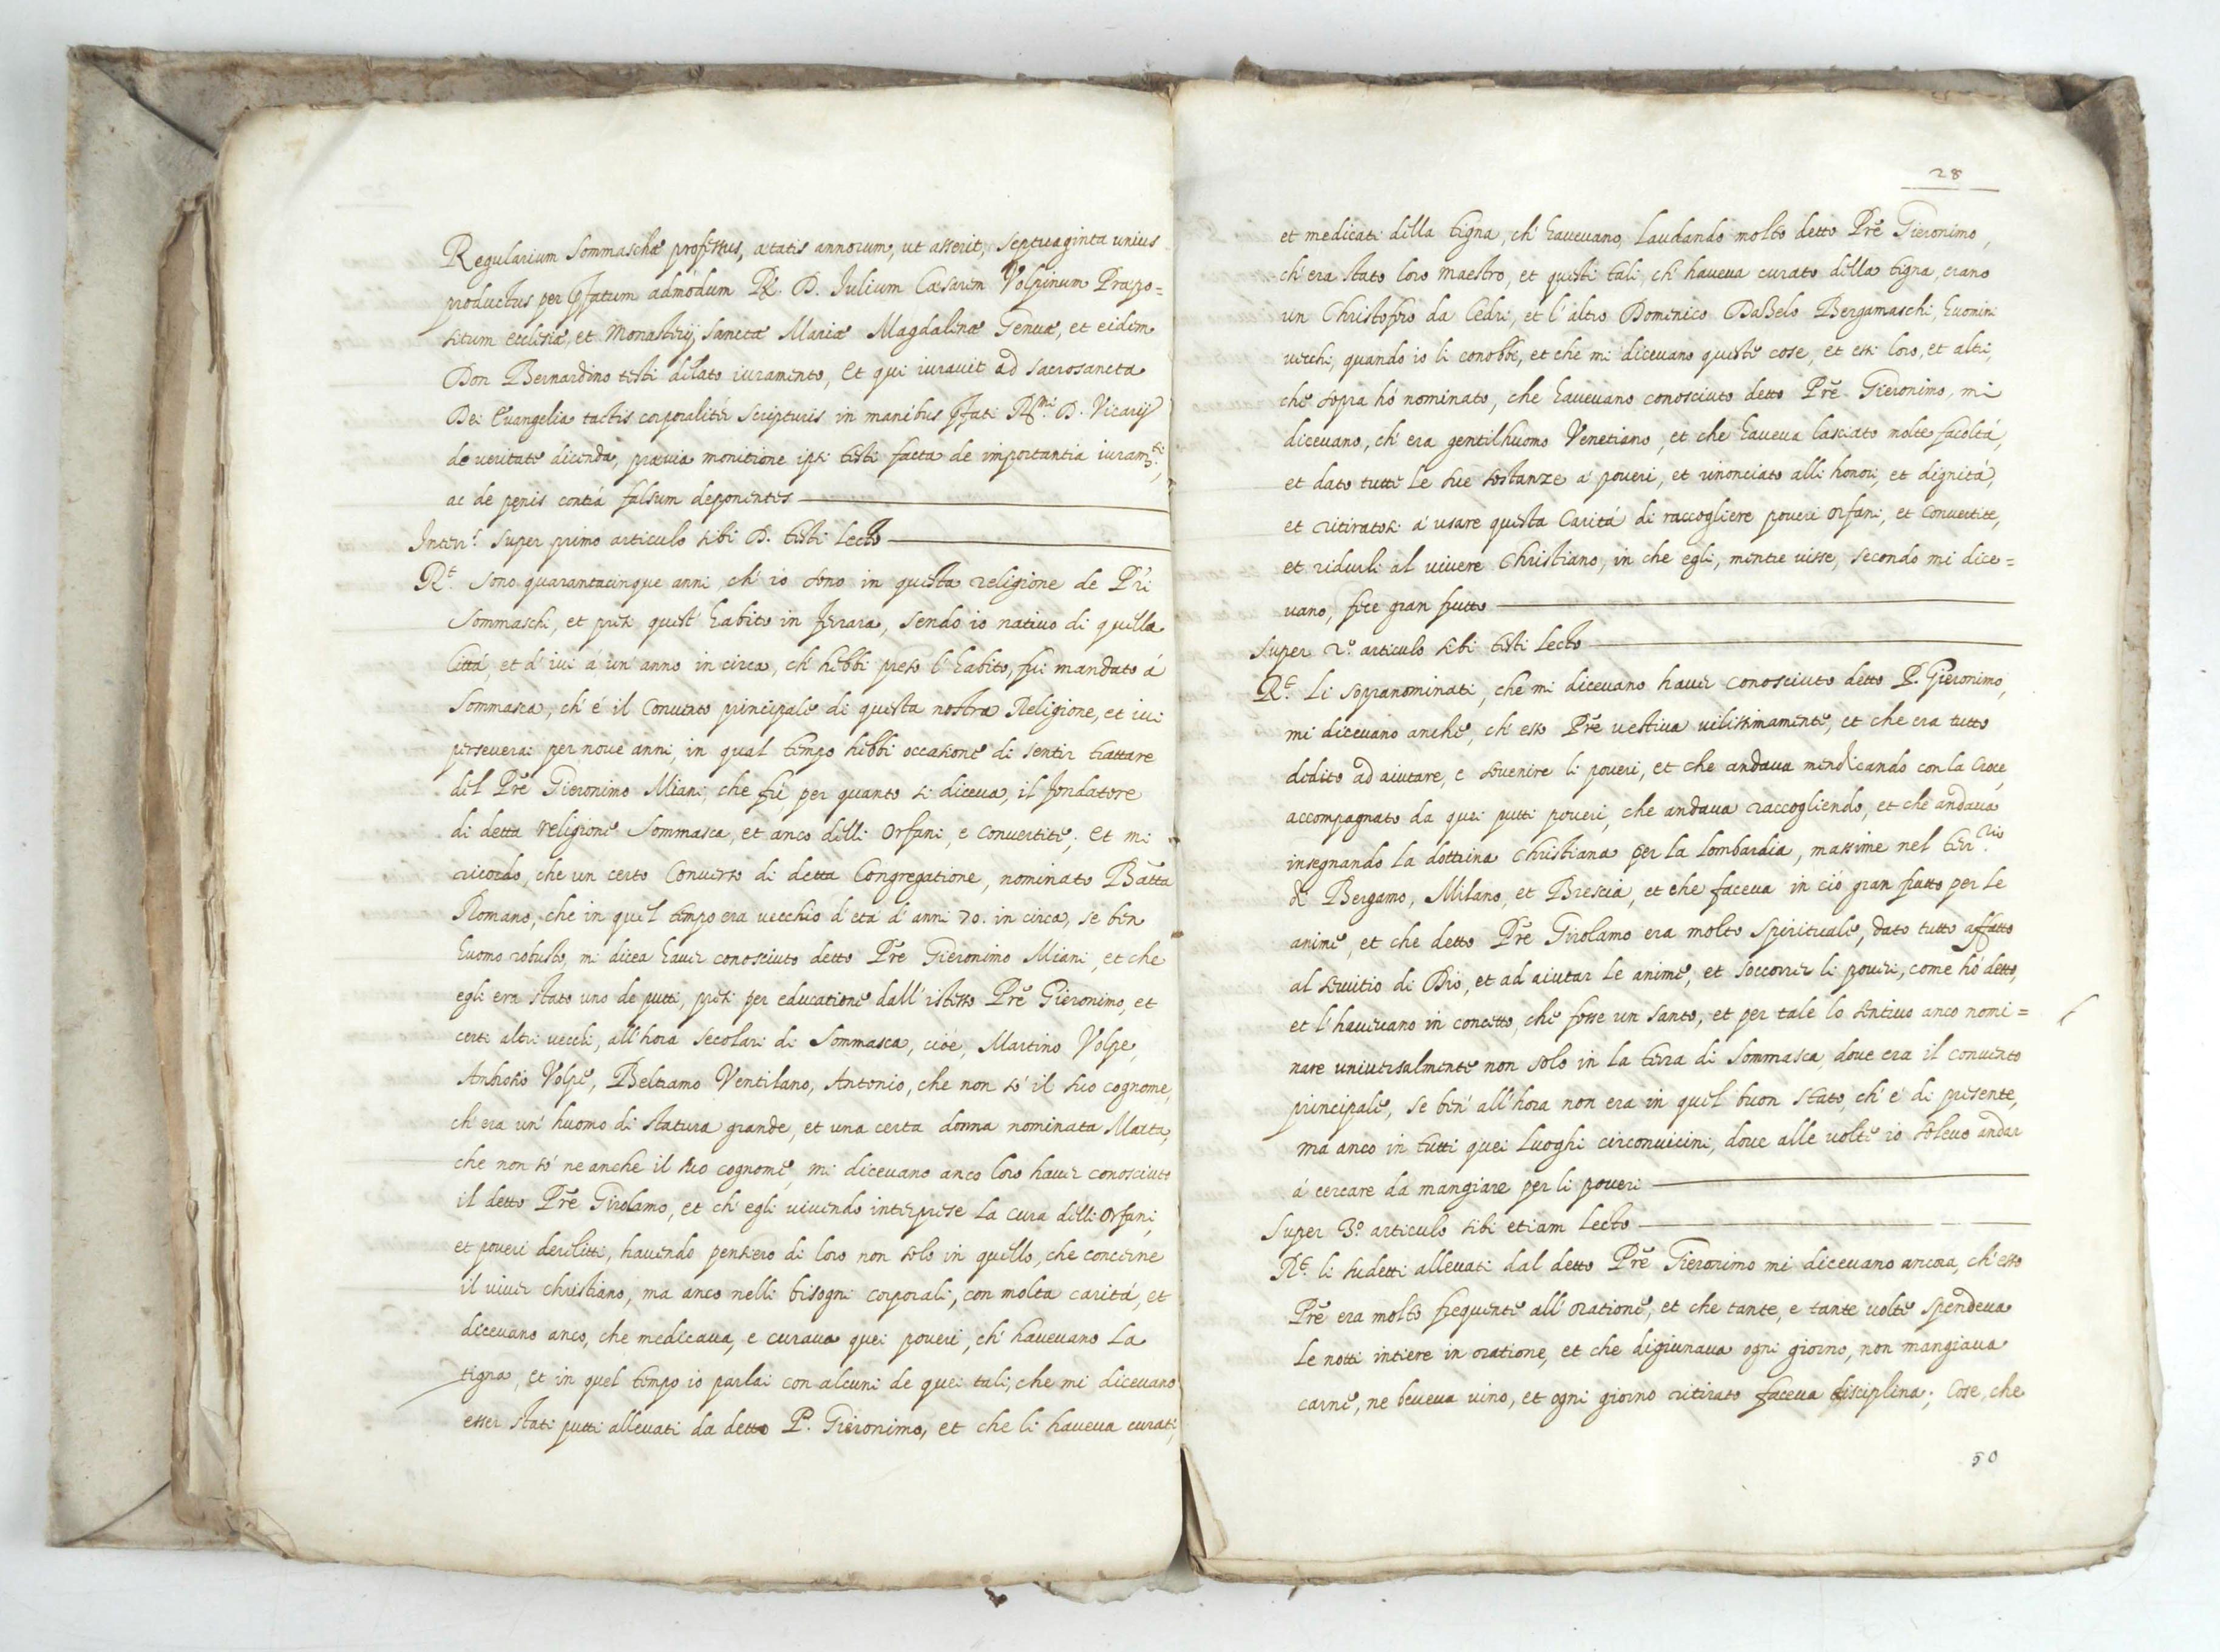 Regularium Sommaschæ professus, ætatis annorum, ut asserit, septuaginta unius
productus per pfatum admodum R. D. Iulium Cæsarem Volpinum Præpo=
situm ecclesiæ, et Monasterij Sanctæ Mariæ Magdalenæ Genuæ, et eidem
Don Bernardino testi delato iuramento, et qui iuravit ad sacrosancta
Dei Evangelia tactis corporalitér scripturis in manibus pfati R.mi D. Vicarij
de veritate dicenda, prævia monitione ipsi testi facta de importantia iuram.ti,
ac de penis contrá falsum deponentes
Interr.s super primo articulo sibi D. testi lecto
R.t Sono quarantacinque anni ch' io sono in questa religione de P'ri
Sommaschi, et presi quest' habito in Ferrara, sendo io nativo di quella
Città, et d' ivi á un' anno in circa, ch' hebbi preso l' habito, fui mandato á
Sommasca, ch' é il Convento principale di questa nostra Religione, et ivi
perseverai per nove anni, in qual tempo hebbi occasione di sentir trattare
del Prẽ Gieronimo Miani, che fú per quanto si diceva, il fondatore
di detta religione Sommasca, et anco delli Orfani, e Convertite, et mi
ricordo, che un certo Converso di detta Congregatione, nominato Batta
Romano, che in quel tempo era vecchio d' etá d' anni 70. in circa, se ben
huomo robusto, mi dicea haver conosciuto detto Prẽ Gieronimo Miani, et che
egli era stato uno de putti, presi per educatione dall' istesso Prẽ Gieronimo, et
certi altri vecchi, all' hora secolari di Sommasca, cioé, Martino Volpe,
Ambrosio Volpe, Beltramo Ventilano, Antonio, che non só il suo cognome,
ch' era un' huomo di statura grande, et una certa donna nominata Marta,
che non só ne anche il suo cognome, mi dicevano anco loro haver conosciuto
il detto Prẽ Girolamo, et ch' egli vivendo interprese la cura delli Orfani,
et poveri derelitti, havendo pensiero di loro non solo in quello, che concerne
il viver christiano, ma anco nelli bisogni corporali, con molta caritá, et
dicevano anco, che medicava, e curava quei poveri, ch' havevano la
tigna, et in quel tempo io parlai con alcuni de quei tali, che mi dicevano
esser stati putti allevati da detto P. Gieronimo, et che li haveva curati,
28
et medicati della tigna, ch' havevano, laudando molto detto Prẽ Gieronimo,
ch' era stato loro maestro, et questi tali, ch' haveva curato della tigna, erano
un Christofro da Cedri, et l' altro Domenico DaBelo Bergamaschi, huomini
vecchi, quando io li conobbi, et che mi dicevano queste cose, et essi loro, et altri,
che sopra hó nominato, che havevano conosciuto detto Prẽ Gieronimo, mi
dicevano, ch' era gentilhuomo Venetiano, et che haveva lasciato molte facoltá,
et dato tutte le sue sostanze á poveri, et rinonciato alli honori, et dignitá,
et ritiratosi á usare questa Caritá di raccogliere poveri orfani, et Convertite,
et ridurli al vivere Christiano, in che egli, mentre visse, secondo mi dice=
vano, fece gran frutto
Super 2.o articulo sibi testi lecto
R.t Li sopranominati, che mi dicevano haver conosciuto detto P. Gieronimo,
mi dicevano anche, ch' esso Prẽ vestiva vilissimamente, et che era tutto
dedito ad aiutare, e sovenire li poveri, et che andava mendicando con la Croce,
accompagnato da quei putti poveri, che andava raccogliendo, et che andava
insegnando la dottrina Christiana per la Lombardia, massime nel terr.rio
di Bergamo, Milano, et Brescia, et che faceva in ció gran frutto per le
anime, et che detto Prẽ Girolamo era molto spirituale, dato tutto affatto
al servitio di Dio, et ad aiutar le anime, et soccorrer li poveri, come hó detto,
et l' havevano in concetto, che fosse un santo, et per tale lo sentivo anco nomi=
nare universalmente non solo in la terra di Sommasca, dove era il convento
principale, se ben' all' hora non era in quel buon stato, ch' é di presente,
ma anco in tutti quei luoghi circonvicini, dove alle volte io solevo andar
á cercare da mangiare per li poveri
Super 3.o articulo sibi etiam lecto
R.t li sudetti allevati dal detto Prẽ Gieronimo mi dicevano ancora, ch' esso
Prẽ era molto frequente all' oratione, et che tante, e tante volte spendeva
le notti intiere in oratione, et che digiunava ogni giorno, non mangiava
carne, ne beveva vino, et ogni giorno ritirato faceva disciplina; Cose, che
50